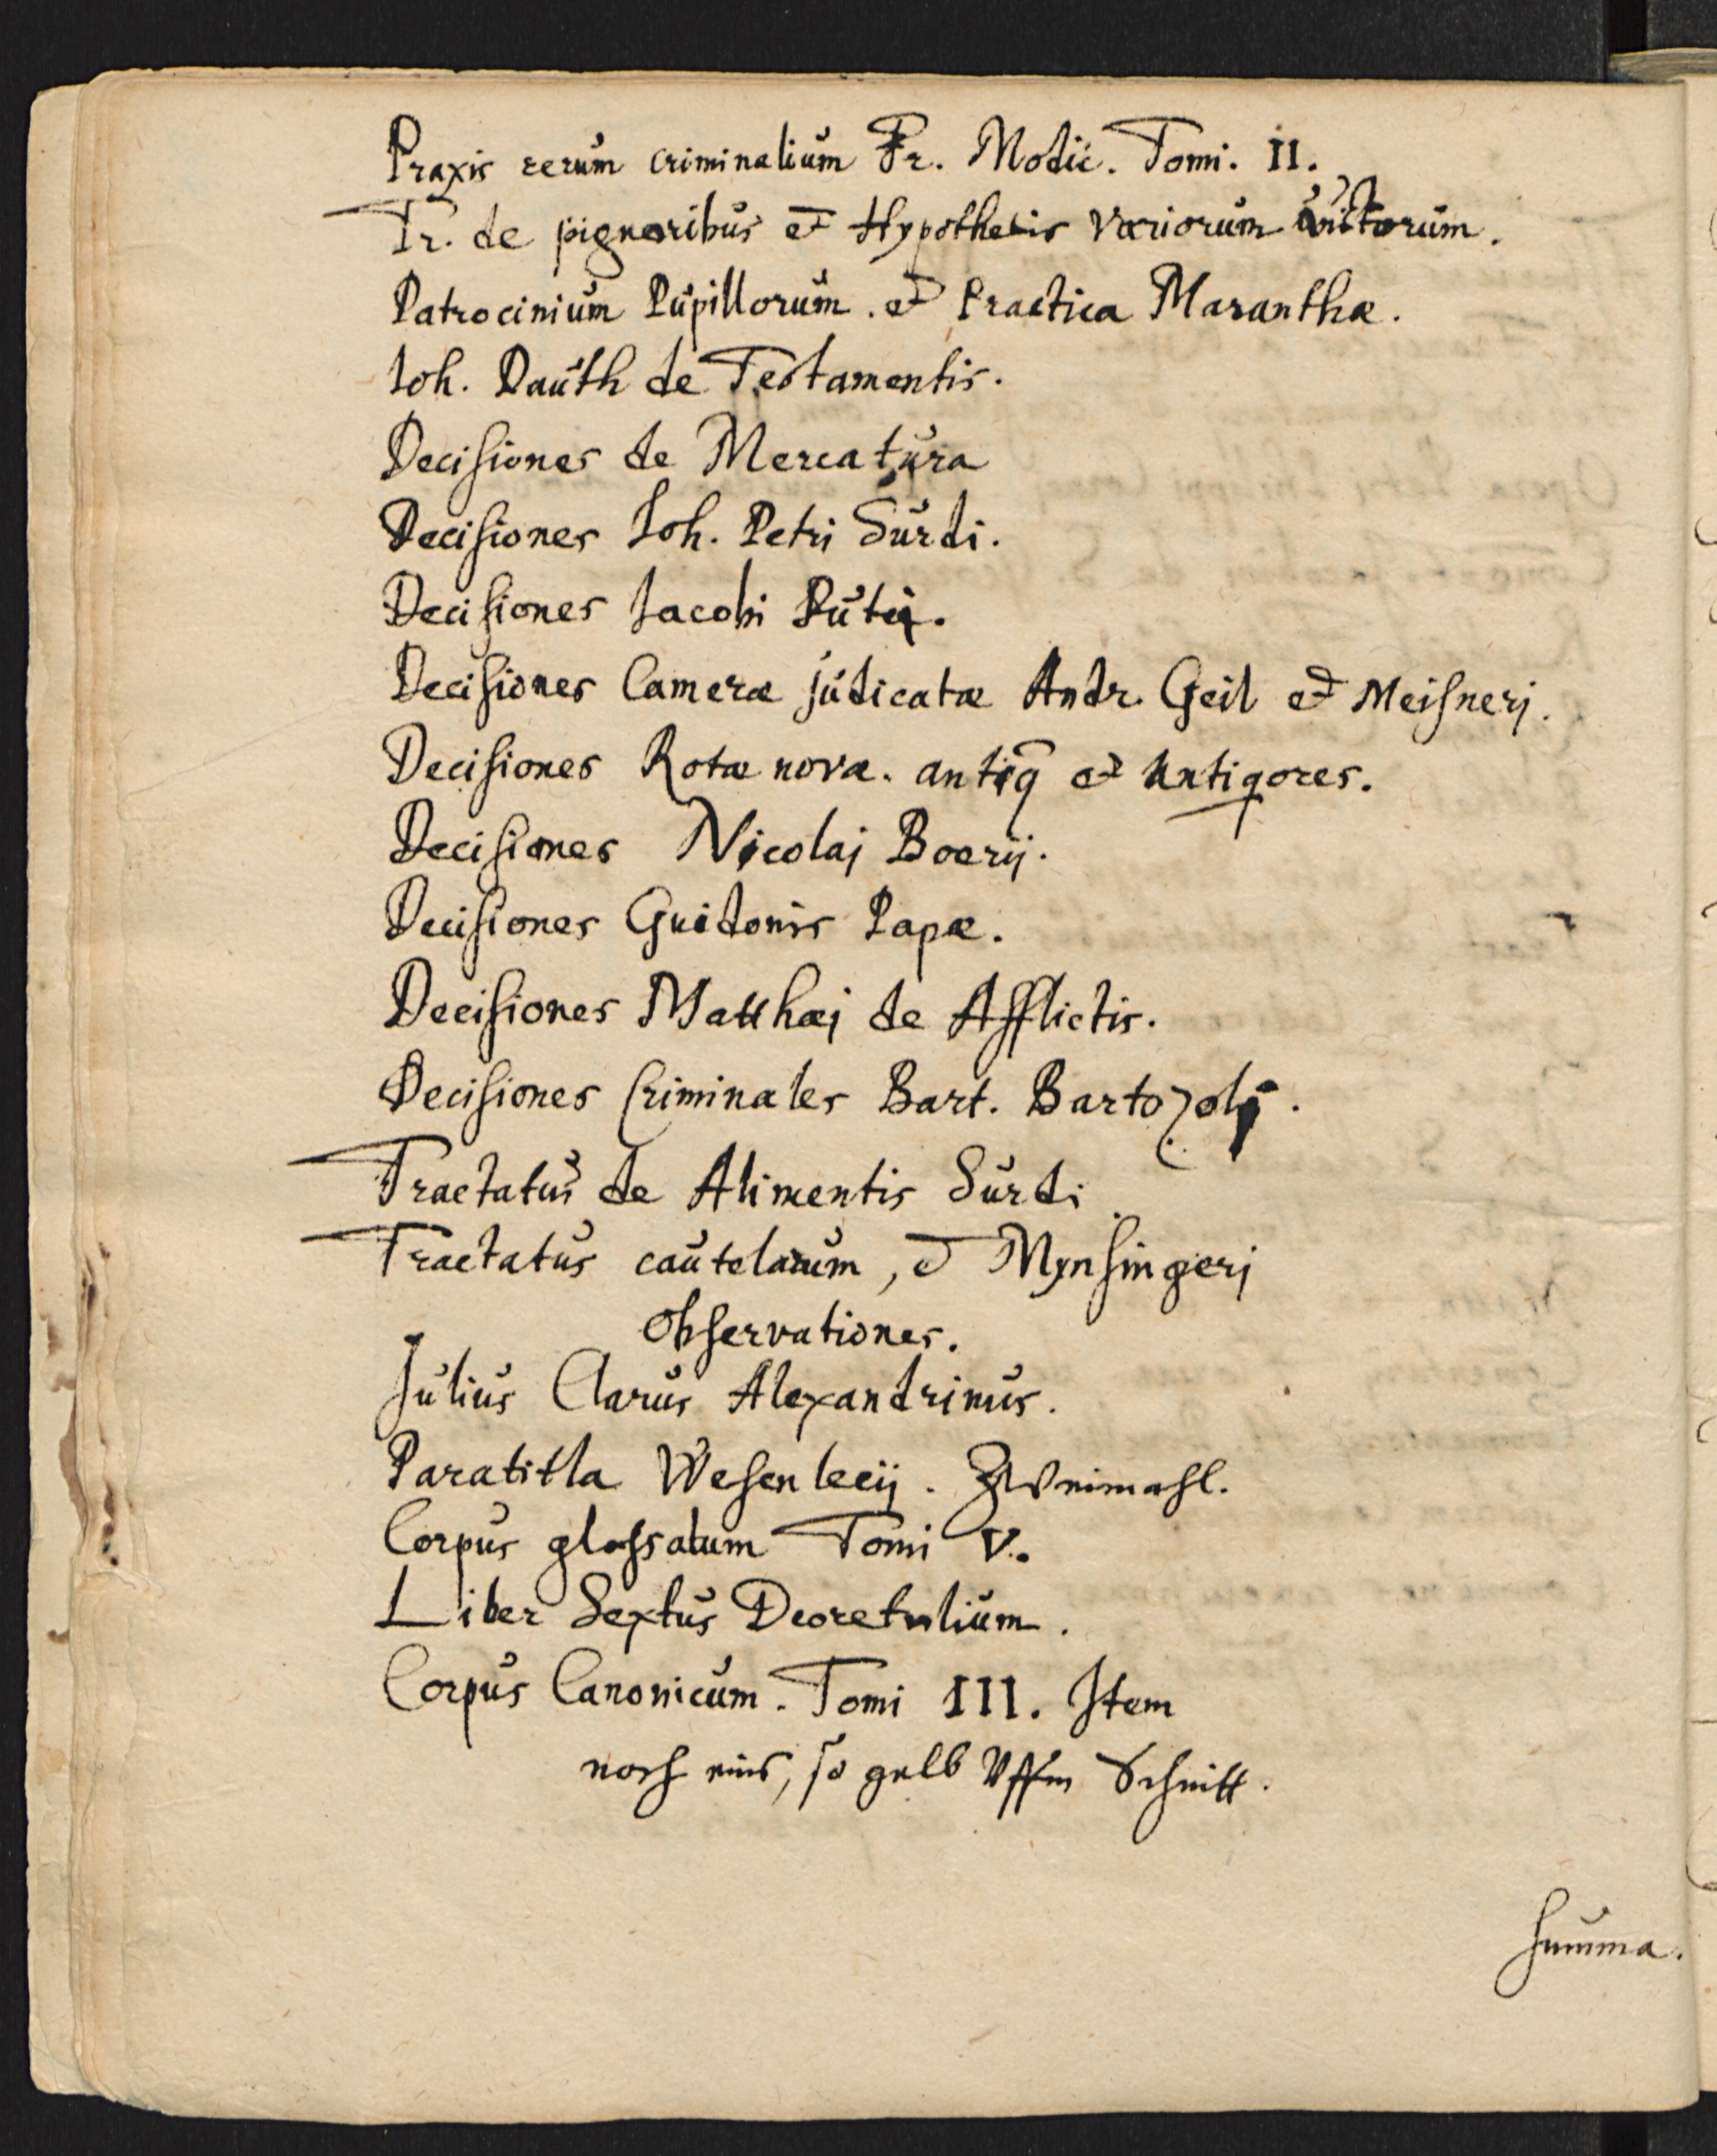 Praxis rerum criminalium Fr. Modii. Tomi. II.
Tr. de pignoribus et Hypothesis variorum autorum.
Patrocinium Pupillorum. et Practica Maranthæ.
Ioh. Dauth de Testamentis.
Decisiones de Mercatura
Decisiones Joh. Petri Surdi.
Decisiones Iacobi Putei.
Decisiones Cameræ judicatæ Andr. Geil et Meisnerj.
Decisiones Rotæ novæ. antiq̃ et antiqores.
Decisiones Nicolaj Boerij.
Decisiones Guidonis Papæ.
Decisiones Matthæj de Afflictis.
Decisiones Criminales Bart. Bartozolj.
Tractatus de Alimentis Surdi
Tractatus cautelarum, et Mynsingerj
Observationes.
Julius Clarus Alexandrinus.
Paratitla Wesenbecij. Zweimahl.
Corpus glossatum Tomi V.
Liber Sextus Decretalium.
Corpus Canonicum. Tomi III. Item
noch eins, so gelb Vffm Schnitt.
Summa.